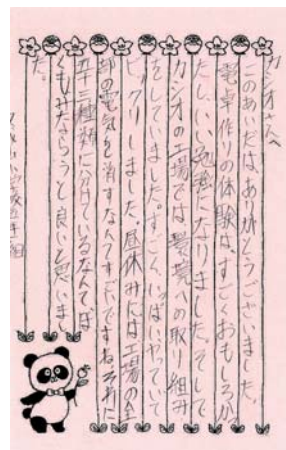 カシオさんへ
このあいだは、ありがとうございました。
電卓作りの体験は、すごくおもしろかっ
たし、いい勉強になりました。そして
カシオの工場では、環境への取り組み
をしていました。すごく、いっぱいやっていて
ビックリしました。昼休みには工場の全
部の電気を消すなんてすごいですね。それに
五十三種類に分けているなんてぼ
くもみならうと良いと思いまし
た。